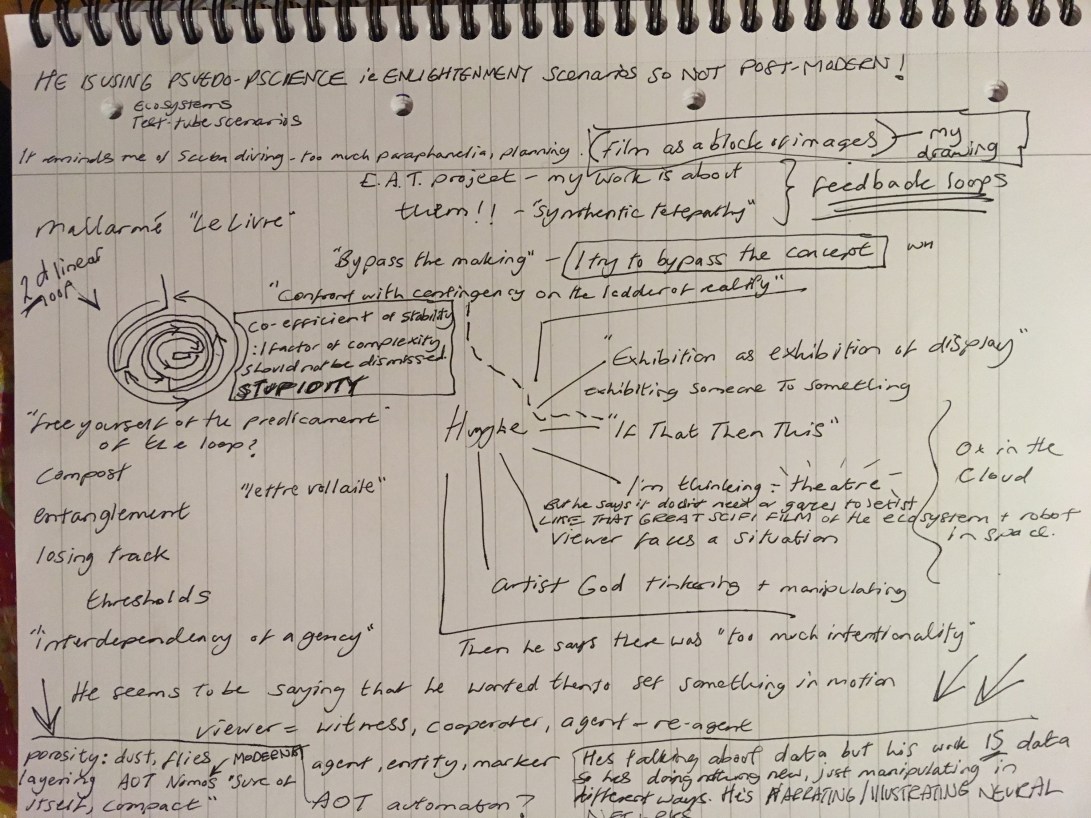 HE IS USING PSUEDO-PSCIENCE ie ENLIGHTENMENT Scenarios so NOT POST-MODERN!
Ecosystems
Test-tube scenarios
It reminds me of Scuba diving - too much paraphanelia, planning. (film as a block of images) - my drawing
E.A.T. project - my work is about
them!! - "Synthentic telepathy"
feedback loops
Mallarmé "Le Livre"
"Bypass the making" - I try to bypass the concept
2d linear
loop
"Confront with contingency on the ladder of reality"
co-efficient of stability
: 1 factor of complexity
should not be dismissed
STUPIDITY
"Exhibition as exhibition of display"
exhibiting someone To something
"free yourself of the predicament
of the loop?
Huyghe
"If That Then This"
Compost
"lettre vollaite"
I'm thinking = theatre
But he says it doesn't need a gaze to exist
LIKE THAT GREAT SCIFI FILM of the ecosystem + robot
in space.
Ox in the
Cloud
entanglement
viewer faces a situation
losing track
artist God tinkering + manipulating
thresholds
"interdependency of agency"
Then he says there was "too much intentionality"
He seems to be saying that he wanted then to set something in motion
viewer = witness, cooperater, agent - re-agent
porosity: dust, flies
layering AOT Nomos
MODERNIST
"Sure of
itself, compact"
agent, entity, marker
AOT automaton?
Hes talking about data but his work IS data
so hes doing nothing new, just manipulating in
different ways. He's NARRATING/ILLUSTRATING NEURAL